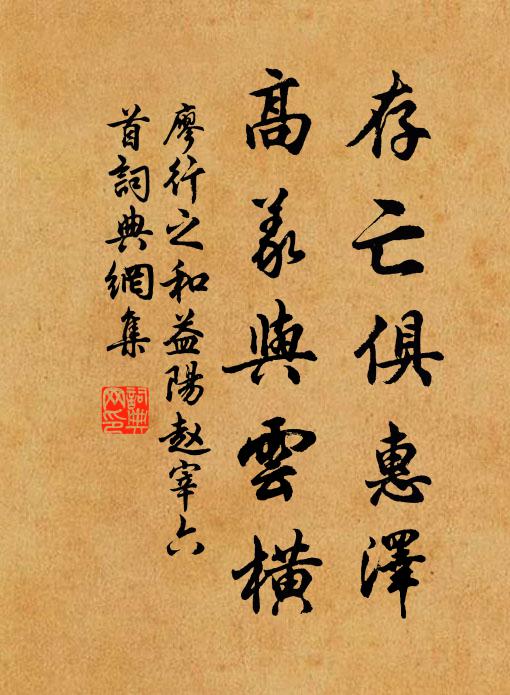 存亡俱惠澤
高義與雲橫
廖行之和益陽赵宰六
首詞典網集
詞典
网印